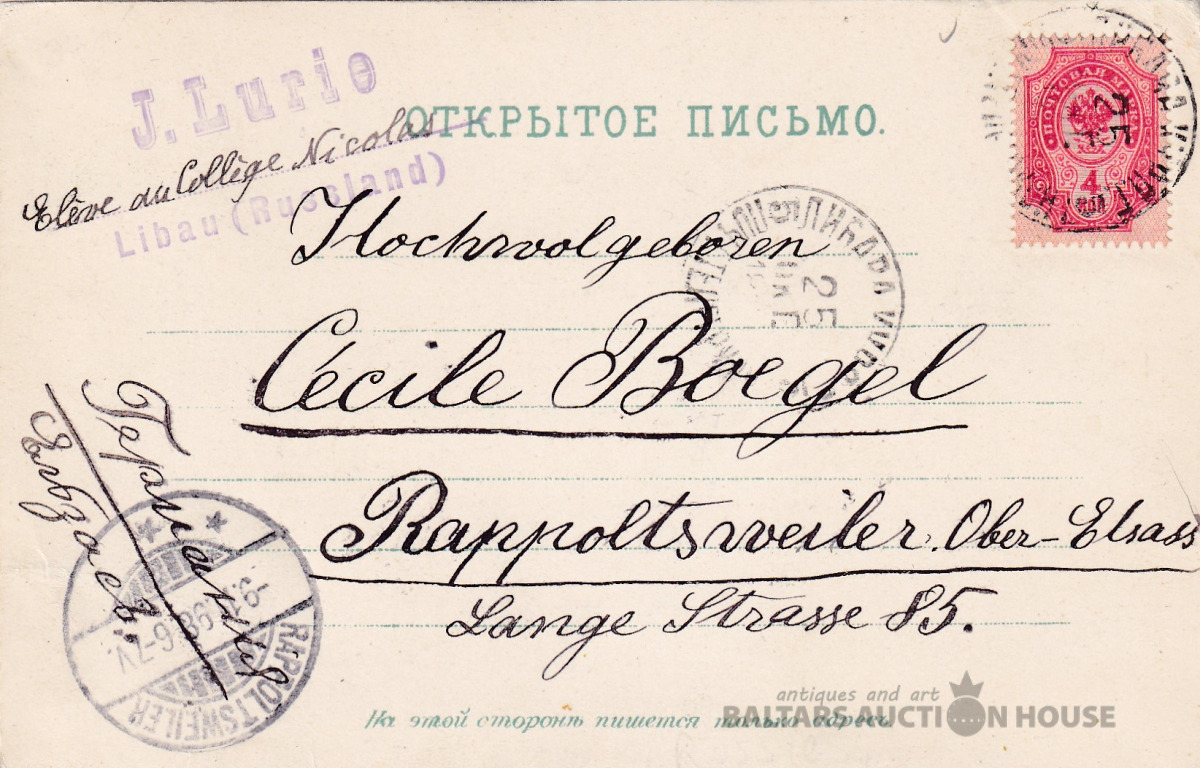 J. Lurie
ОТКРЫТОЕ ПИСЬМО.
Elève au Collège Nicolas
Libau (Russland)
ПОЧТОВАЯ МАРКА
4
25
Hochwolgeboren
ЛИБАВА
25
Cécile Boegel
Rappoltsweiler. Ober-Elsass
Lange Strasse 85.
Германія
Эльзасъ.
RAPPOLTSWEILER
6-7V.
На этой сторонѣ пишется только адресъ.
antiques and art
BALTARS AUCTION HOUSE